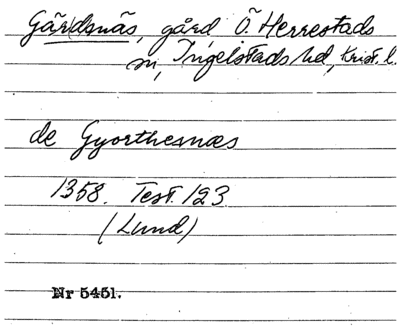 Gärdsnäs, gård Ö. Herrestads
sn, Ingelstads hd, Krist. l.
de Gyorthesnæs
1358. Test. 123
(Lund)
Nr 5451.